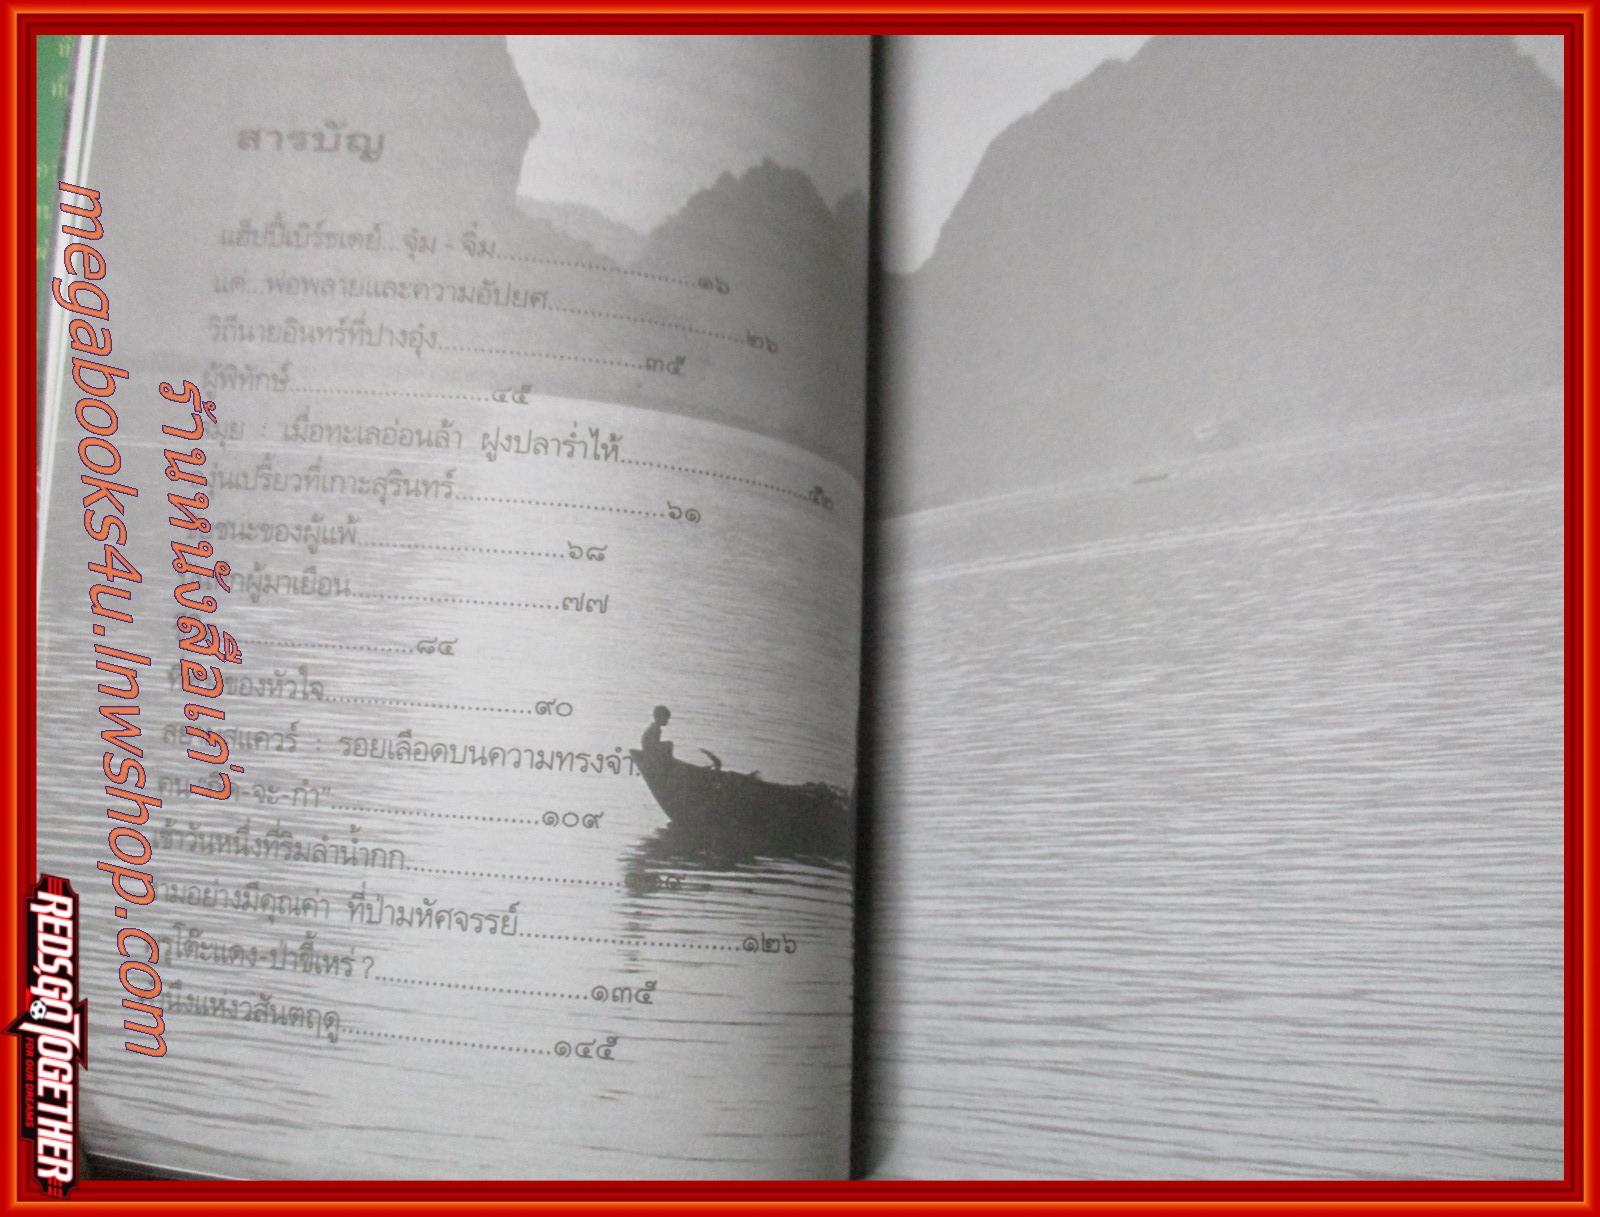 สารบัญ
แฮ็ปปี้เบิร์ธเดย์...จุ๋ม - จิ๋ม.......................๑๖
แค่...พ่อพลายและความอัปยศ.......................๒๖
วิถีนายอินทร์ที่ปางอุ๋ง.......................๓๕
ผู้พิทักษ์.......................๔๕
มุย : เมื่อทะเลอ่อนล้า ฝูงปลาร่ำไห้.......................๕๒
งุ่นเปรี้ยวที่เกาะสุรินทร์.......................๖๑
ชนะของผู้แพ้.......................๖๘
ผู้มาเยือน.......................๗๗
.......................๘๔
ของหัวใจ.......................๙๐
สแควร์ : รอยเลือดบนความทรงจำ
คน -จะ-กำ".......................๑๐๙
เช้าวันหนึ่งที่ริมลำน้ำกก.......................
ามอย่างมีคุณค่า ที่ป่ามหัศจรรย์.......................๑๒๖
โต๊ะแดง-ป่าขี้เหร่ ?.......................๑๓๕
หนึ่งแห่งวสันตฤดู.......................๑๔๕
ร้านหนังสือเก่า
megabooks4u.lnwshop.com
REDSGOTOGETHER
FOR OUR DREAMS